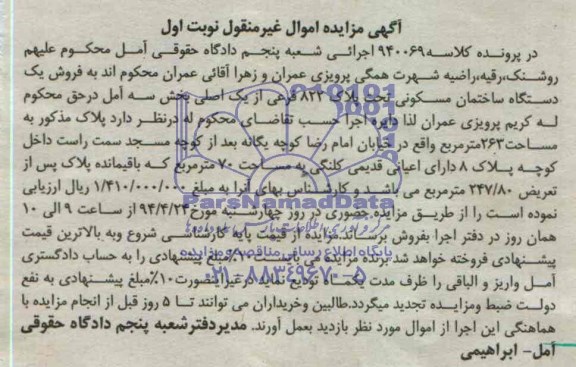 آگهی مزایده اموال غیرمنقول نوبت اول
در پرونده کلاسه ۹۴۰۰۶۹ اجرائی شعبه پنجم دادگاه حقوقی آمل محکوم علیهم
روشنک،رقیه،راضیه شهرت همگی پرویزی عمران و زهرا آقائی عمران محکوم اند به فروش یک
دستگاه ساختمان مسکونی تحت پلاک ۸۲۳ فرعی از یک اصلی بخش سه آمل درحق محکوم
له کریم پرویزی عمران لذا دایره اجرا حسب تقاضای محکوم له درنظر دارد پلاک مذکور به
مساحت۲۶۳مترمربع واقع در خیابان امام رضا کوچه یگانه بعد از کوچه مسجد سمت راست داخل
کوچه پلاک ۸ دارای اعیانی قدیمی کلنگی به مساحت ۷۰ مترمربع که باقیمانده پلاک پس از
تعریض ۲۴۷/۸۰ مترمربع می باشد و کارشناس بهای آنرا به مبلغ ۱/۴۱۰/۰۰۰/۰۰۰ ریال ارزیابی
نموده است را از طریق مزایده حضوری در روز چهارشنبه مورخ ۹۴/۴/۲۴ از ساعت ۹ الی ۱۰
همان روز در دفتر اجرا بفروش برساند.مزایده از قیمت پایه کارشناسی شروع وبه بالاترین قیمت
پیشنهادی فروخته خواهد شد برنده مزایده می بایست ۱۰٪مبلغ پیشنهادی را به حساب دادگستری
آمل واریز و الباقی را ظرف مدت یکماه تودیع نماید درغیراینصورت۱۰٪مبلغ پیشنهادی به نفع
دولت ضبط ومزایده تجدید میگردد.طالبین وخریداران می توانند تا ۵ روز قبل از انجام مزایده با
هماهنگی این اجرا از اموال مورد نظر بازدید بعمل آورند. مدیردفترشعبه پنجم دادگاه حقوقی
آمل- ابراهیمی
ParsNamadData
پایگاه اطلاع رسانی مناقصه و مزایده
۰۲۱-۸۸۳۴۹۶۷۰-۵